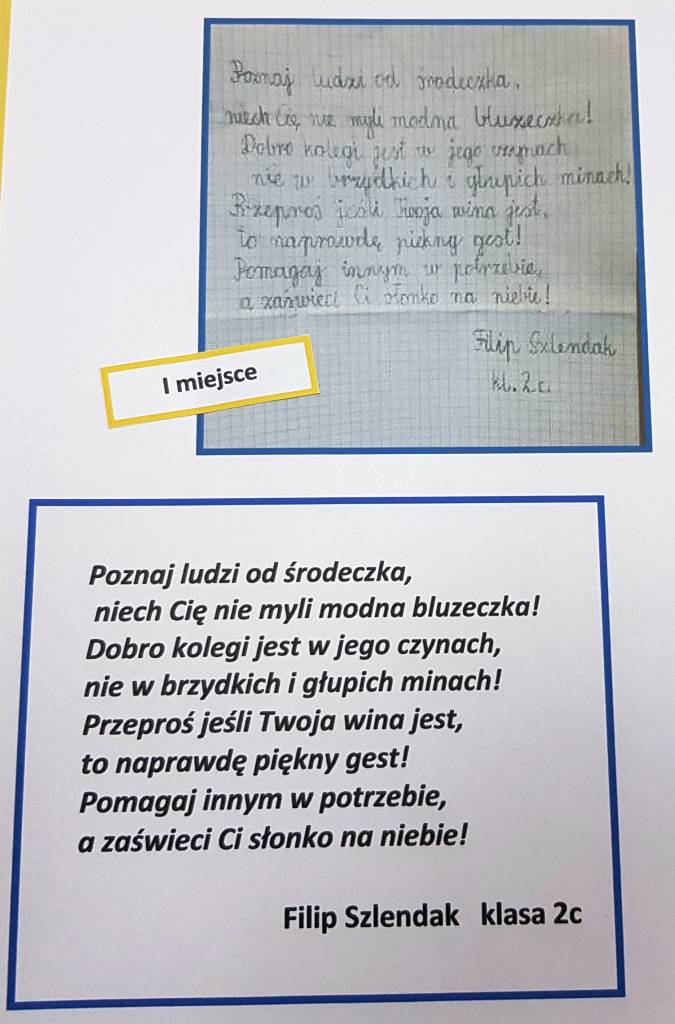 Poznaj ludzi od środeczka,
niech Cię nie myli modna bluzeczka!
Dobro kolegi jest w jego czynach
nie w brzydkich i głupich minach!
Przeproś jeśli Twoja wina jest,
to naprawdę piękny gest!
Pomagaj innym w potrzebie,
a zaświeci Ci słonko na niebie!
Filip Szlendak
kl. 2c.
I miejsce
Poznaj ludzi od środeczka,
niech Cię nie myli modna bluzeczka!
Dobro kolegi jest w jego czynach,
nie w brzydkich i głupich minach!
Przeproś jeśli Twoja wina jest,
to naprawdę piękny gest!
Pomagaj innym w potrzebie,
a zaświeci Ci słonko na niebie!
Filip Szlendak klasa 2c